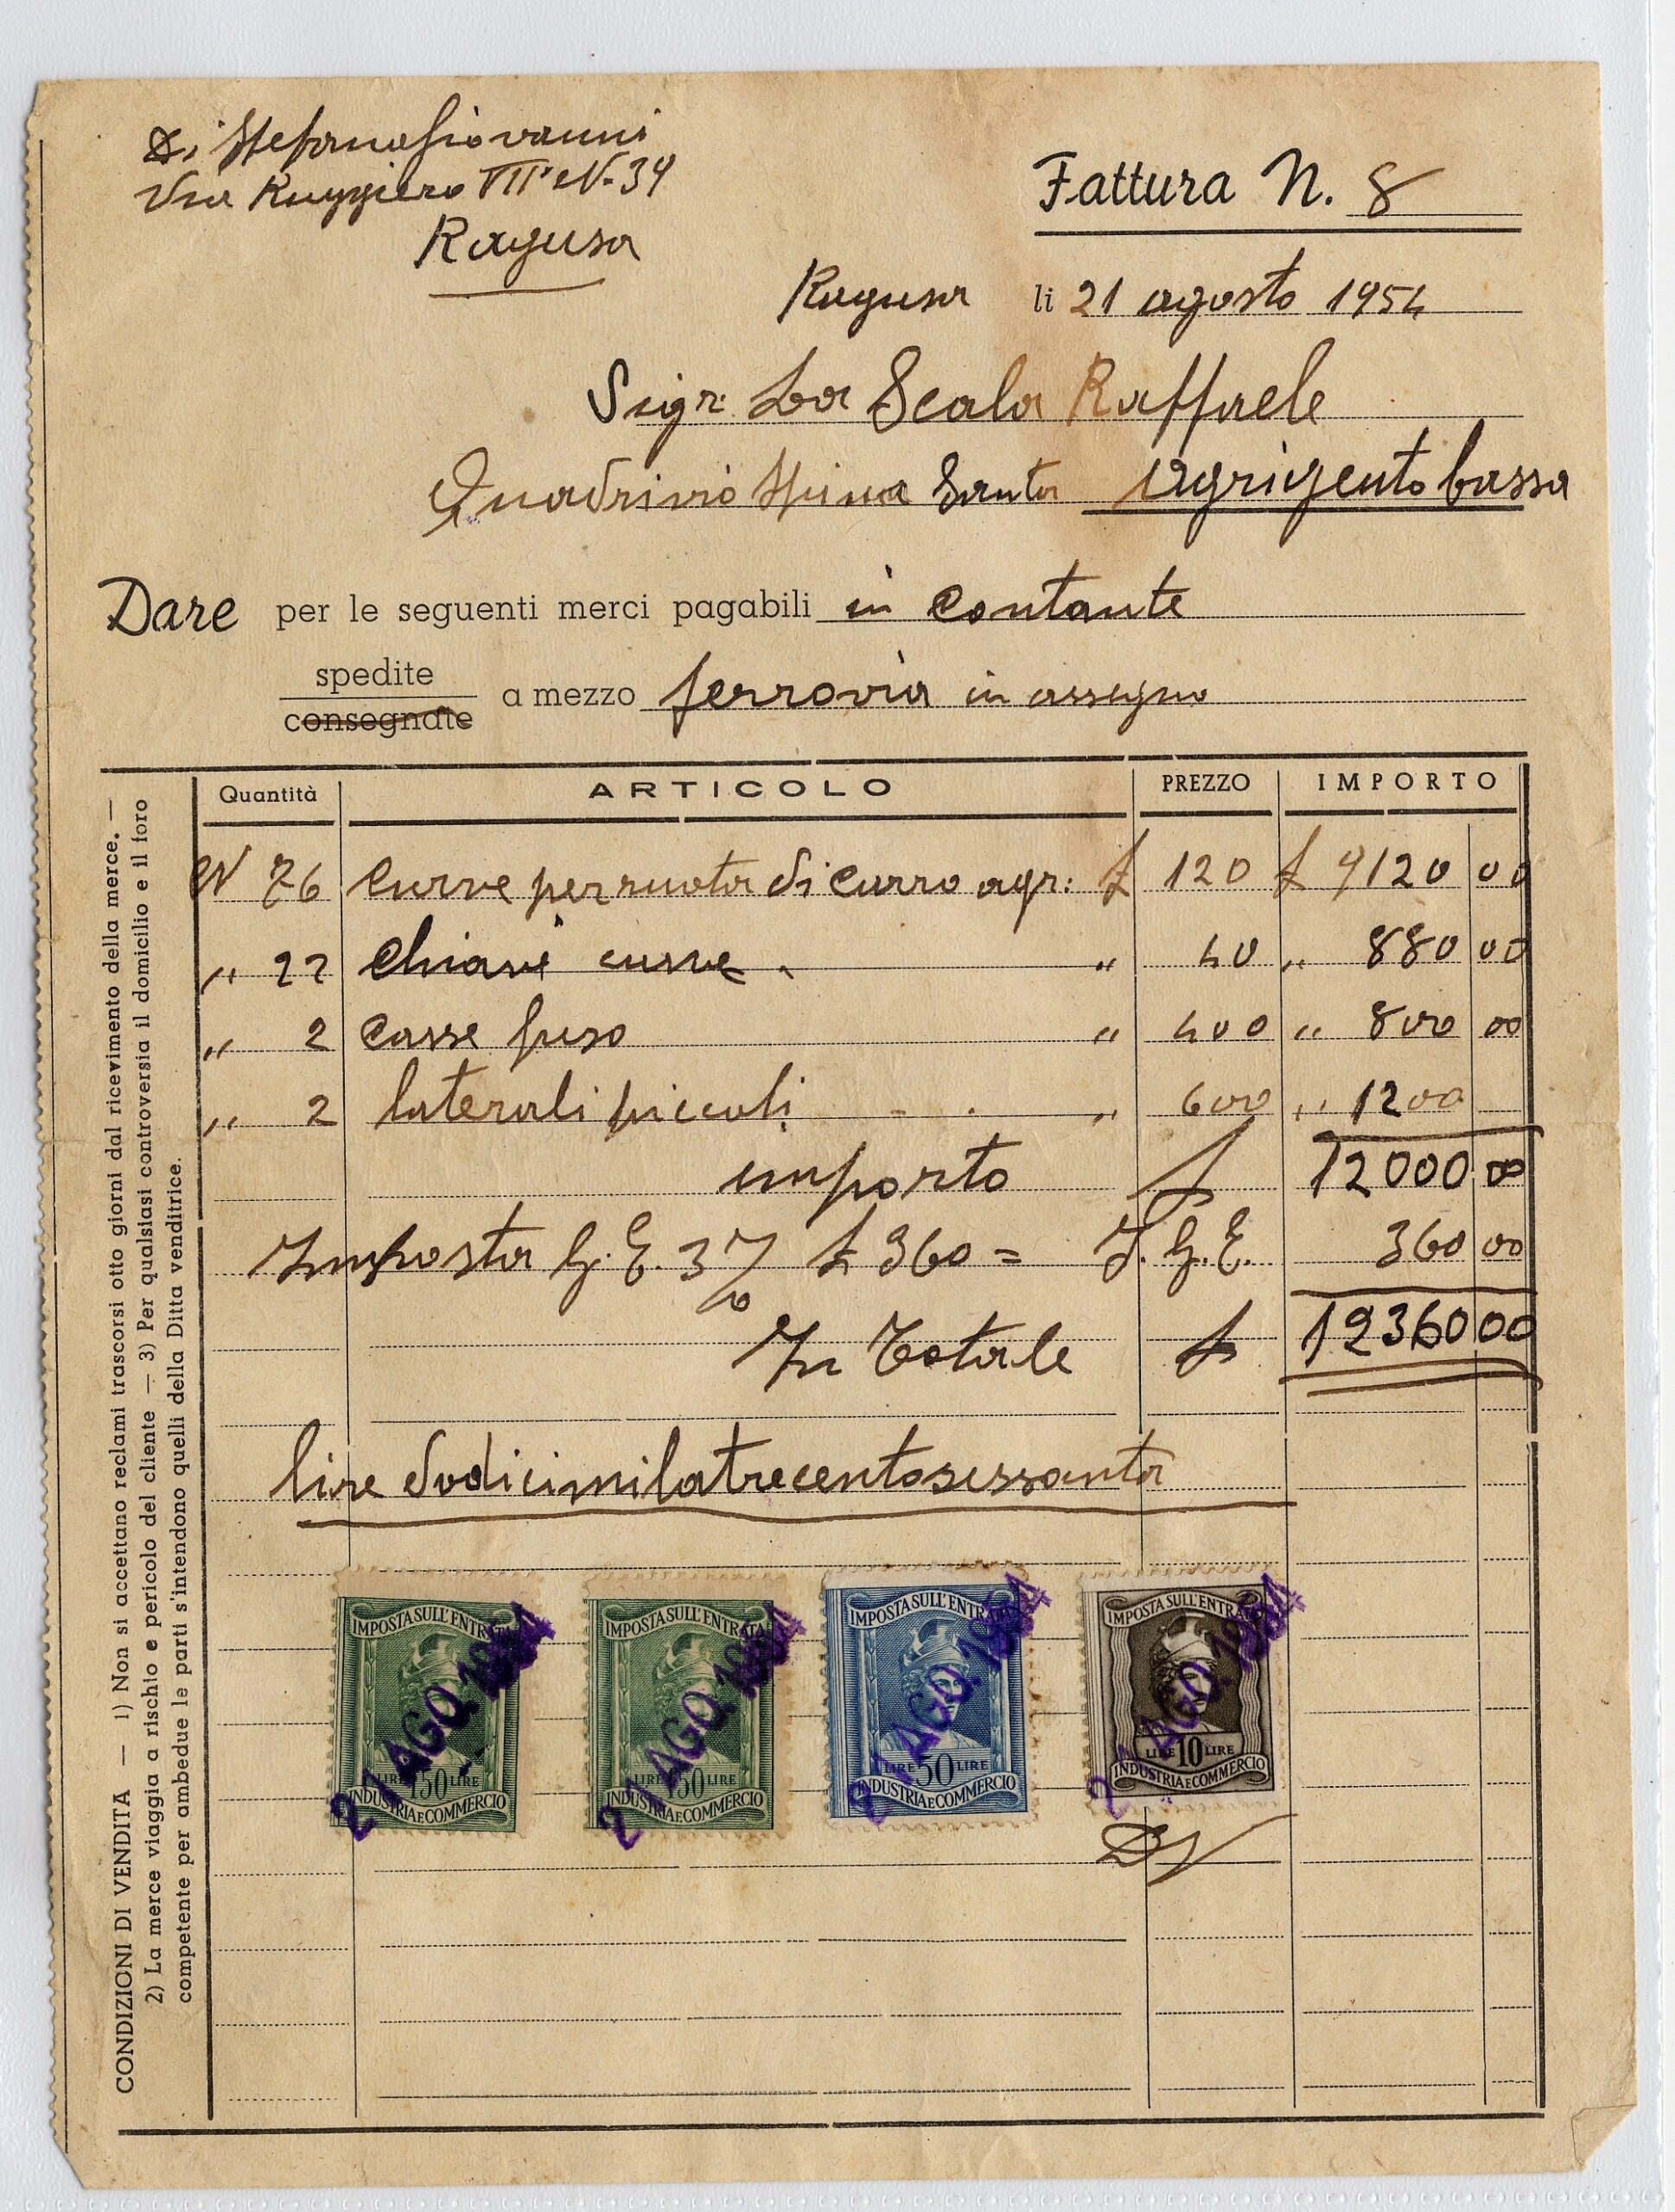 Di Stefano Giovanni
Via Ruggiero III° N. 34
Ragusa
Fattura N. 8
Ragusa li 21 agosto 1954
Sigr: La Scala Raffaele
Quadrivio Spina Santa Agrigento bassa
Dare per le seguenti merci pagabili in contante
spedite
consegnate
a mezzo ferrovia in assegno
Quantità ARTICOLO PREZZO IMPORTO
N 76 Curve per ruota di carro agr: £ 120 £ 9120 00
" 22 Chiavi curve " 40 " 880 00
" 2 Casse fuso " 400 " 800 00
" 2 laterali piccoli " 600 " 1200
importo £ 12000 00
Imposta G. E. 3% £ 360 = I. G. E. 360 00
In Totale £ 12360 00
lire dodicimilatrecentosessanta
IMPOSTA SULL'ENTRATA
LIRE 150 LIRE
INDUSTRIA E COMMERCIO
21 AGO. 1954
IMPOSTA SULL'ENTRATA
LIRE 150 LIRE
INDUSTRIA E COMMERCIO
21 AGO. 1954
IMPOSTA SULL'ENTRATA
LIRE 50 LIRE
INDUSTRIA E COMMERCIO
21 AGO. 1954
IMPOSTA SULL'ENTRATA
LIRE 10 LIRE
INDUSTRIA E COMMERCIO
21 AGO. 1954
CONDIZIONI DI VENDITA — 1) Non si accettano reclami trascorsi otto giorni dal ricevimento della merce. —
2) La merce viaggia a rischio e pericolo del cliente — 3) Per qualsiasi controversia il domicilio e il foro
competente per ambedue le parti s'intendono quelli della Ditta venditrice.